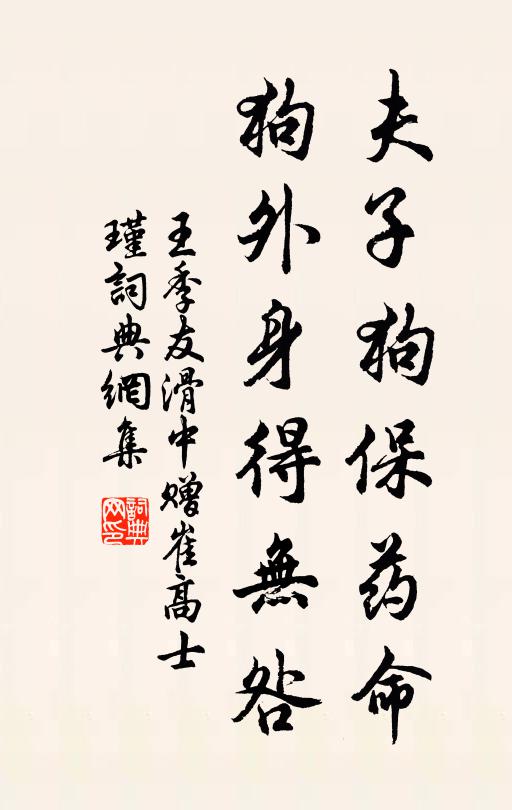 夫子狗保药命
狗外身得無咎
王季友滑中赠崔高士
瑾詞典網集
詞典
网印